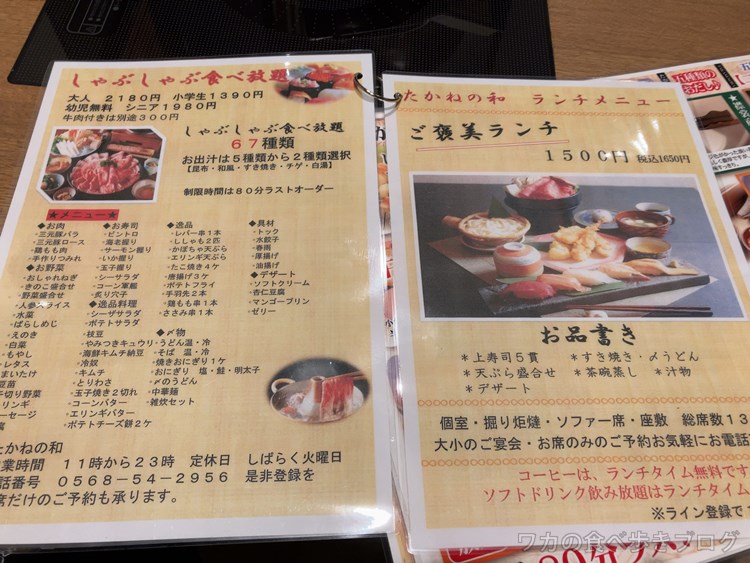 しゃぶしゃぶ食べ放題
大人 2180円 小学生1390円
幼児無料 シニア1980円
牛肉付きは別途300円
しゃぶしゃぶ食べ放題
67種類
お出汁は5種類から2種類選択
【昆布・和風・すき焼き・チゲ・白湯】
制限時間は80分ラストオーダー
★メニュー★
◆お肉
・三元豚バラ
・三元豚ロース
・鶏もも肉
・手作りつみれ
◆お野菜
・おしゃれねぎ
・きのこ盛合せ
・野菜盛合せ
・人参スライス
・水菜
・ばらしめじ
・えのき
・白菜
・もやし
レタス
まいたけ
豆苗
千切り野菜
エリンギ
ソーセージ
◆お寿司
・ビントロ
・海老握り
・サーモン握り
・いか握り
・玉子握り
・ツナサラダ
・コーン軍艦
・炙り穴子
◆逸品料理
・シーザサラダ
・ポテトサラダ
・枝豆
・やみつきキュウリ
・海鮮キムチ納豆
・冷奴
・キムチ
・とりわさ
・玉子焼き2切れ
・コーンバター
・エリンギバター
・ポテトチーズ餅2ケ
◆逸品
・レバー串1本
・ししゃも2匹
・かぼちゃ天ぷら
・エリンギ天ぷら
・たこ焼き4ケ
・唐揚げ3ケ
・ポテトフライ
・手羽先2本
・鶏もも串1本
・ささみ串1本
◆〆物
・うどん温・冷
・そば 温・冷
・焼きおにぎり1ケ
・おにぎり 塩・鮭・明太子
・〆のうどん
・中華麺
・雑炊セット
◆具材
・トック
・水餃子
・春雨
・厚揚げ
・油揚げ
◆デザート
・ソフトクリーム
・杏仁豆腐
・マンゴープリン
・ゼリー
たかねの和
業時間 11時から23時 定休日 しばらく火曜日
話番号 0568-54-2956 是非登録を
席だけのご予約も承ります。
たかねの和 ランチメニュー
ご褒美ランチ
1500円 税込1650円
お品書き
*上寿司5貫 *すき焼き・〆うどん
*天ぷら盛合せ *茶碗蒸し *汁物
*デザート
個室・掘り炬燵・ソファー席・座敷 総席数13
大小のご宴会・お席のみのご予約お気軽にお電話
コーヒーは、ランチタイム無料です
ソフトドリンク飲み放題はランチタイム
※ライン登録で1
五種類の
おだし
ワカの食べ歩きブログ